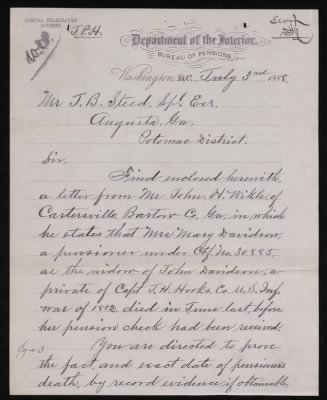 SPECIAL EXAMINATION
DIVISION.
J.P.H.
Department of the Interior,
BUREAU OF PENSIONS,
Washington D.C. July 3rd 1888.
Mr T. B. Steed, Spl Exr.
Augusta, Ga.
Potomac District.
Sir.
Find enclosed herewith
a letter from Mr John. H. Wikle, of
Cartersville, Bartow Co, Ga, in which
he states that Mrs Mary Davidson,
a pensioner under Ctf No. 30.885.
as the widow of John Davidson, a
private of Capt J. H. Hooks. Co. U.S. Inf.
war of 1812. died in June last, before
her pension check had been received.
You are directed to prove
the fact, and exact date of pensioners
death, by record evidence if obtainable,